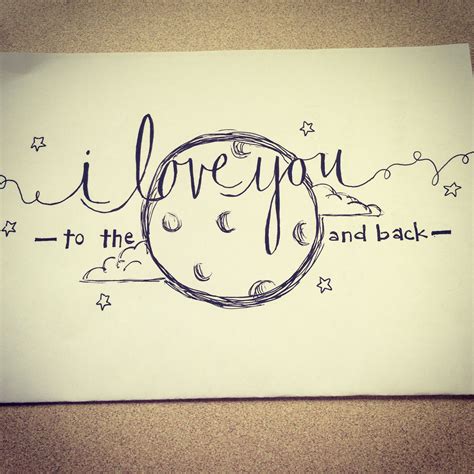 i love you
to the and back